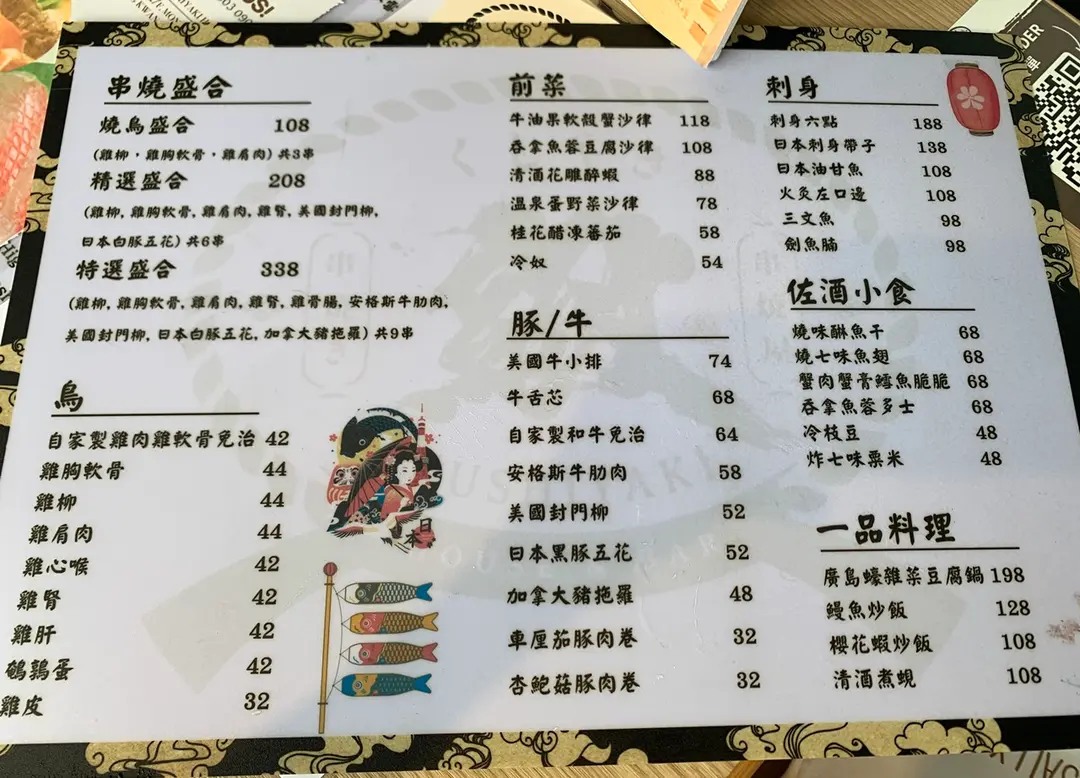 串燒盛合
燒鳥盛合 108
(雞柳，雞胸軟骨，雞肩肉) 共3串
精選盛合 208
(雞柳, 雞胸軟骨, 雞肩肉, 雞腎, 美國封門柳,
日本白豚五花) 共6串
特選盛合 338
(雞柳, 雞胸軟骨, 雞肩肉, 雞腎, 雞骨腸, 安格斯牛肋肉,
美國封門柳, 日本白豚五花, 加拿大豬拖羅) 共9串
鳥
自家製雞肉雞軟骨免治 42
雞胸軟骨 44
雞柳 44
雞肩肉 44
雞心喉 42
雞腎 42
雞肝 42
鵪鶉蛋 42
雞皮 32
日本
前菜
牛油果軟殼蟹沙律 118
吞拿魚蓉豆腐沙律 108
清酒花雕醉蝦 88
溫泉蛋野菜沙律 78
桂花醋凍蕃茄 58
冷奴 54
豚/牛
美國牛小排 74
牛舌芯 68
自家製和牛免治 64
安格斯牛肋肉 58
美國封門柳 52
日本黑豚五花 52
加拿大豬拖羅 48
車厘茄豚肉卷 32
杏鮑菇豚肉卷 32
刺身
刺身六點 188
日本刺身帶子 138
日本油甘魚 108
火炙左口邊 108
三文魚 98
劍魚腩 98
佐酒小食
燒味醂魚干 68
燒七味魚翅 68
蟹肉蟹膏鱈魚脆脆 68
吞拿魚蓉多士 68
冷枝豆 48
炸七味粟米 48
一品料理
廣島蠔雜菜豆腐鍋 198
鰻魚炒飯 128
櫻花蝦炒飯 108
清酒煮蜆 108